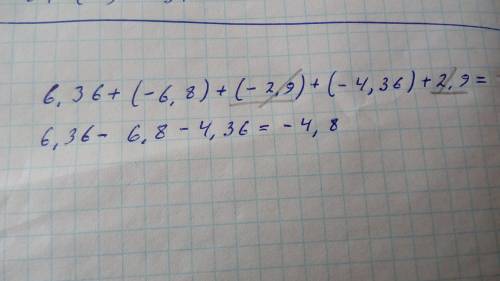 6,36 + (-6,8) + (-2,9) + (-4,36) + 2,9 =
6,36 - 6,8 - 4,36 = -4,8